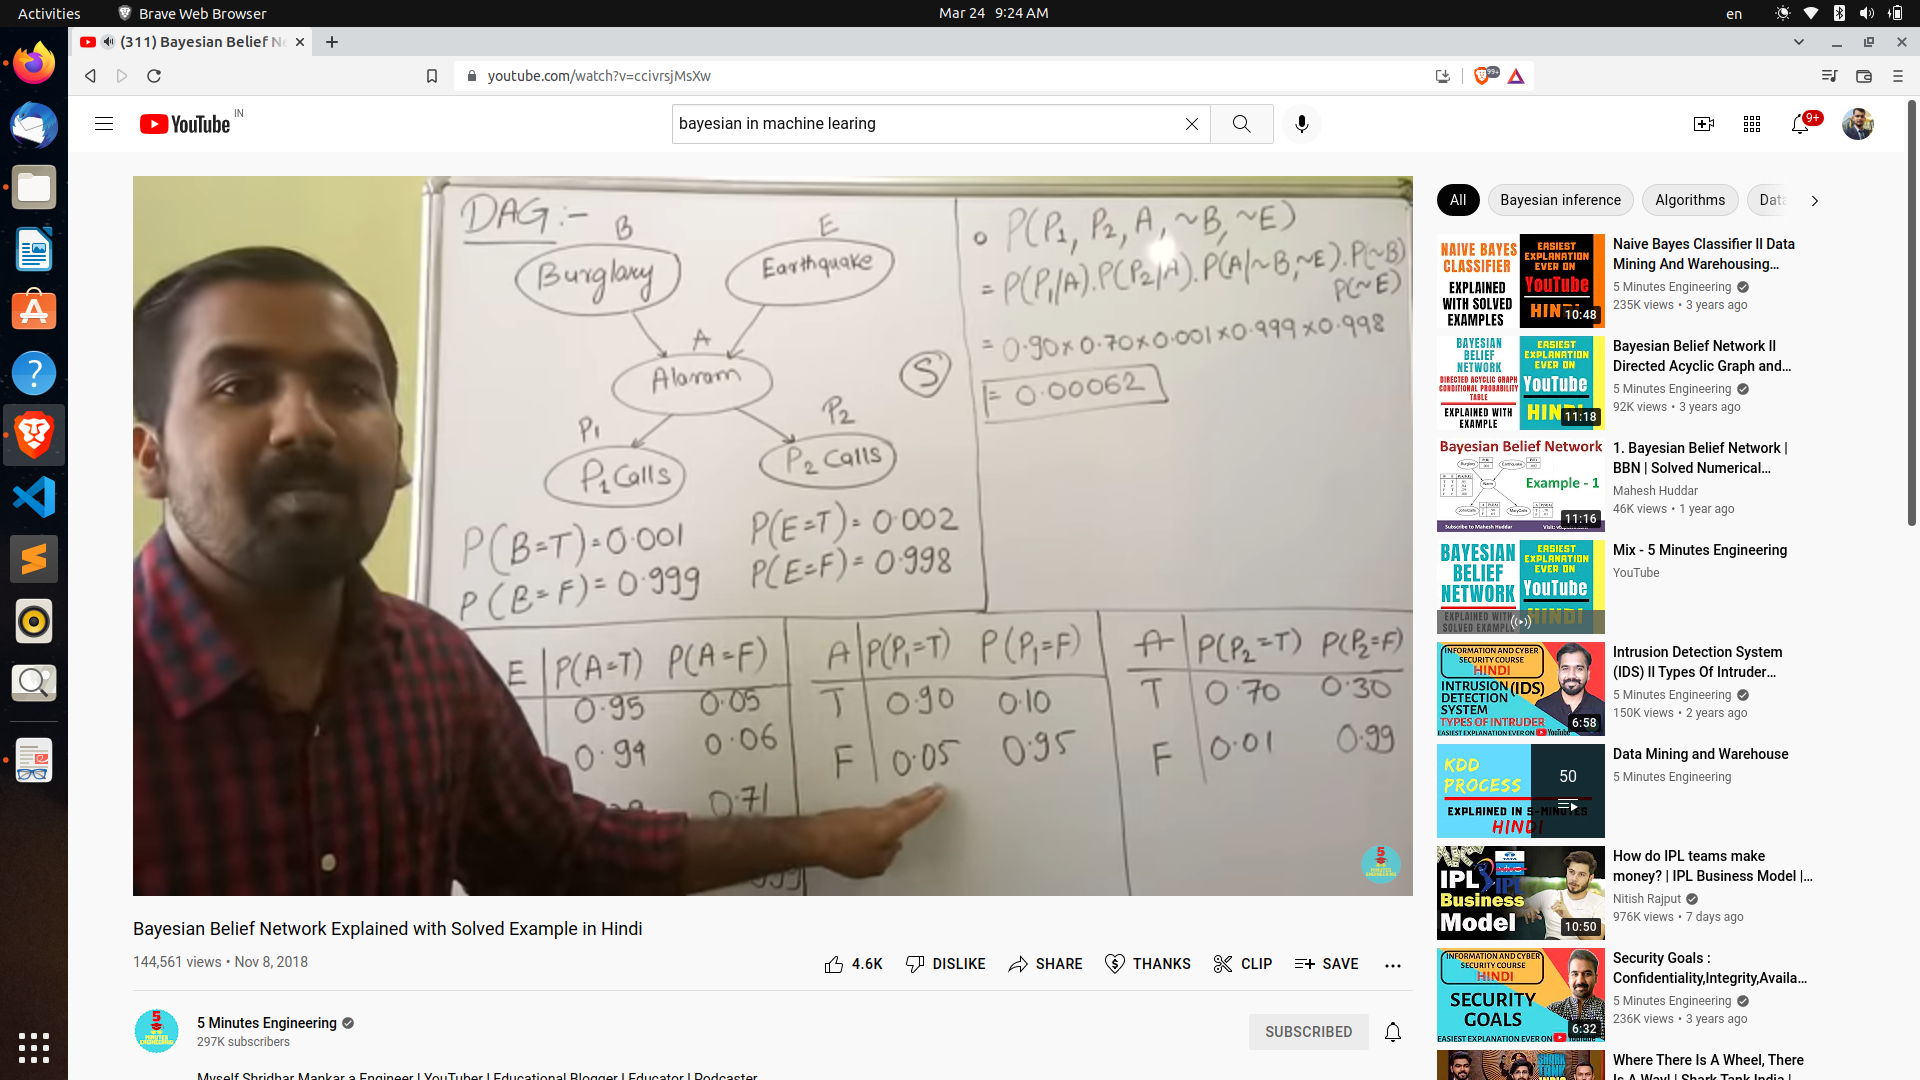 Activities
Brave Web Browser
Mar 24 9:24 AM
en
(311) Bayesian Belief Ne
youtube.com/watch?v=ccivrsjMsXw
99+
YouTube IN
bayesian in machine learing
9+
DAG:-
B
E
Burglary
Earthquake
A
Alaram
S
P1
P2
P1 Calls
P2 Calls
P(B=T)=0.001
P(B=F)=0.999
P(E=T)=0.002
P(E=F)=0.998
P(P1, P2, A, ~B, ~E)
= P(P1/A).P(P2/A).P(A/~B,~E).P(~B)
P(~E)
= 0.90x0.70x0.001x0.999x0.998
= 0.00062
E P(A=T) P(A=F)
0.95 0.05
0.94 0.06
0.71
A P(P1=T) P(P1=F)
T 0.90 0.10
F 0.05 0.95
A P(P2=T) P(P2=F)
T 0.70 0.30
F 0.01 0.99
5
MINUTES
ENGINEERING
Bayesian Belief Network Explained with Solved Example in Hindi
144,561 views • Nov 8, 2018
4.6K
DISLIKE
SHARE
THANKS
CLIP
SAVE
5
MINUTES
ENGINEERING
5 Minutes Engineering
297K subscribers
SUBSCRIBED
Myself Shridhar Mankar a Engineer l YouTuber l Educational Blogger l Educator l Podcaster
All
Bayesian inference
Algorithms
Data
NAIVE BAYES
CLASSIFIER
EXPLAINED
WITH SOLVED
EXAMPLES
EASIEST
EXPLANATION
EVER ON
YouTube
HIN
10:48
Naive Bayes Classifier ll Data
Mining And Warehousing...
5 Minutes Engineering
235K views • 3 years ago
BAYESIAN
BELIEF
NETWORK
DIRECTED ACYCLIC GRAPH
CONDITIONAL PROBABILITY
TABLE
EXPLAINED WITH
EXAMPLE
EASIEST
EXPLANATION
EVER ON
YouTube
HIN
11:18
Bayesian Belief Network ll
Directed Acyclic Graph and...
5 Minutes Engineering
92K views • 3 years ago
Bayesian Belief Network
Example - 1
Subscribe to Mahesh Huddar
11:16
1. Bayesian Belief Network |
BBN | Solved Numerical...
Mahesh Huddar
46K views • 1 year ago
BAYESIAN
BELIEF
NETWORK
EXPLAINED WITH
SOLVED EXAMPLE
EASIEST
EXPLANATION
EVER ON
YouTube
HINDI
Mix - 5 Minutes Engineering
YouTube
INFORMATION AND CYBER
SECURITY COURSE
HINDI
INTRUSION (IDS)
DETECTION
SYSTEM
TYPES OF INTRUDER
EASIEST EXPLANATION EVER ON YouTube
6:58
Intrusion Detection System
(IDS) ll Types Of Intruder...
5 Minutes Engineering
150K views • 2 years ago
KDD
PROCESS
EXPLAINED IN 5-MINUTES
HINDI
50
Data Mining and Warehouse
5 Minutes Engineering
TATA
IPL IPL
Business
Model
10:50
How do IPL teams make
money? | IPL Business Model |...
Nitish Rajput
976K views • 7 days ago
INFORMATION AND CYBER
SECURITY COURSE
HINDI
SECURITY
GOALS
EASIEST EXPLANATION EVER ON YouTube
6:32
Security Goals :
Confidentiality,Integrity,Availa...
5 Minutes Engineering
236K views • 3 years ago
SHARK
TANK
Where There Is A Wheel, There
Is A Way! | Shark Tank India |